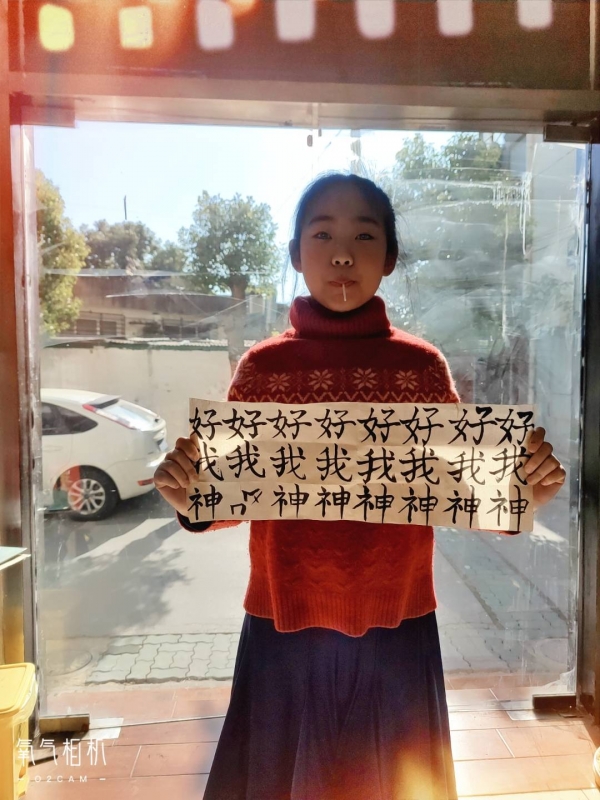 好好好好好好好好
我我我我我我我我
神神神神神神神
氧气相机
O2CAM